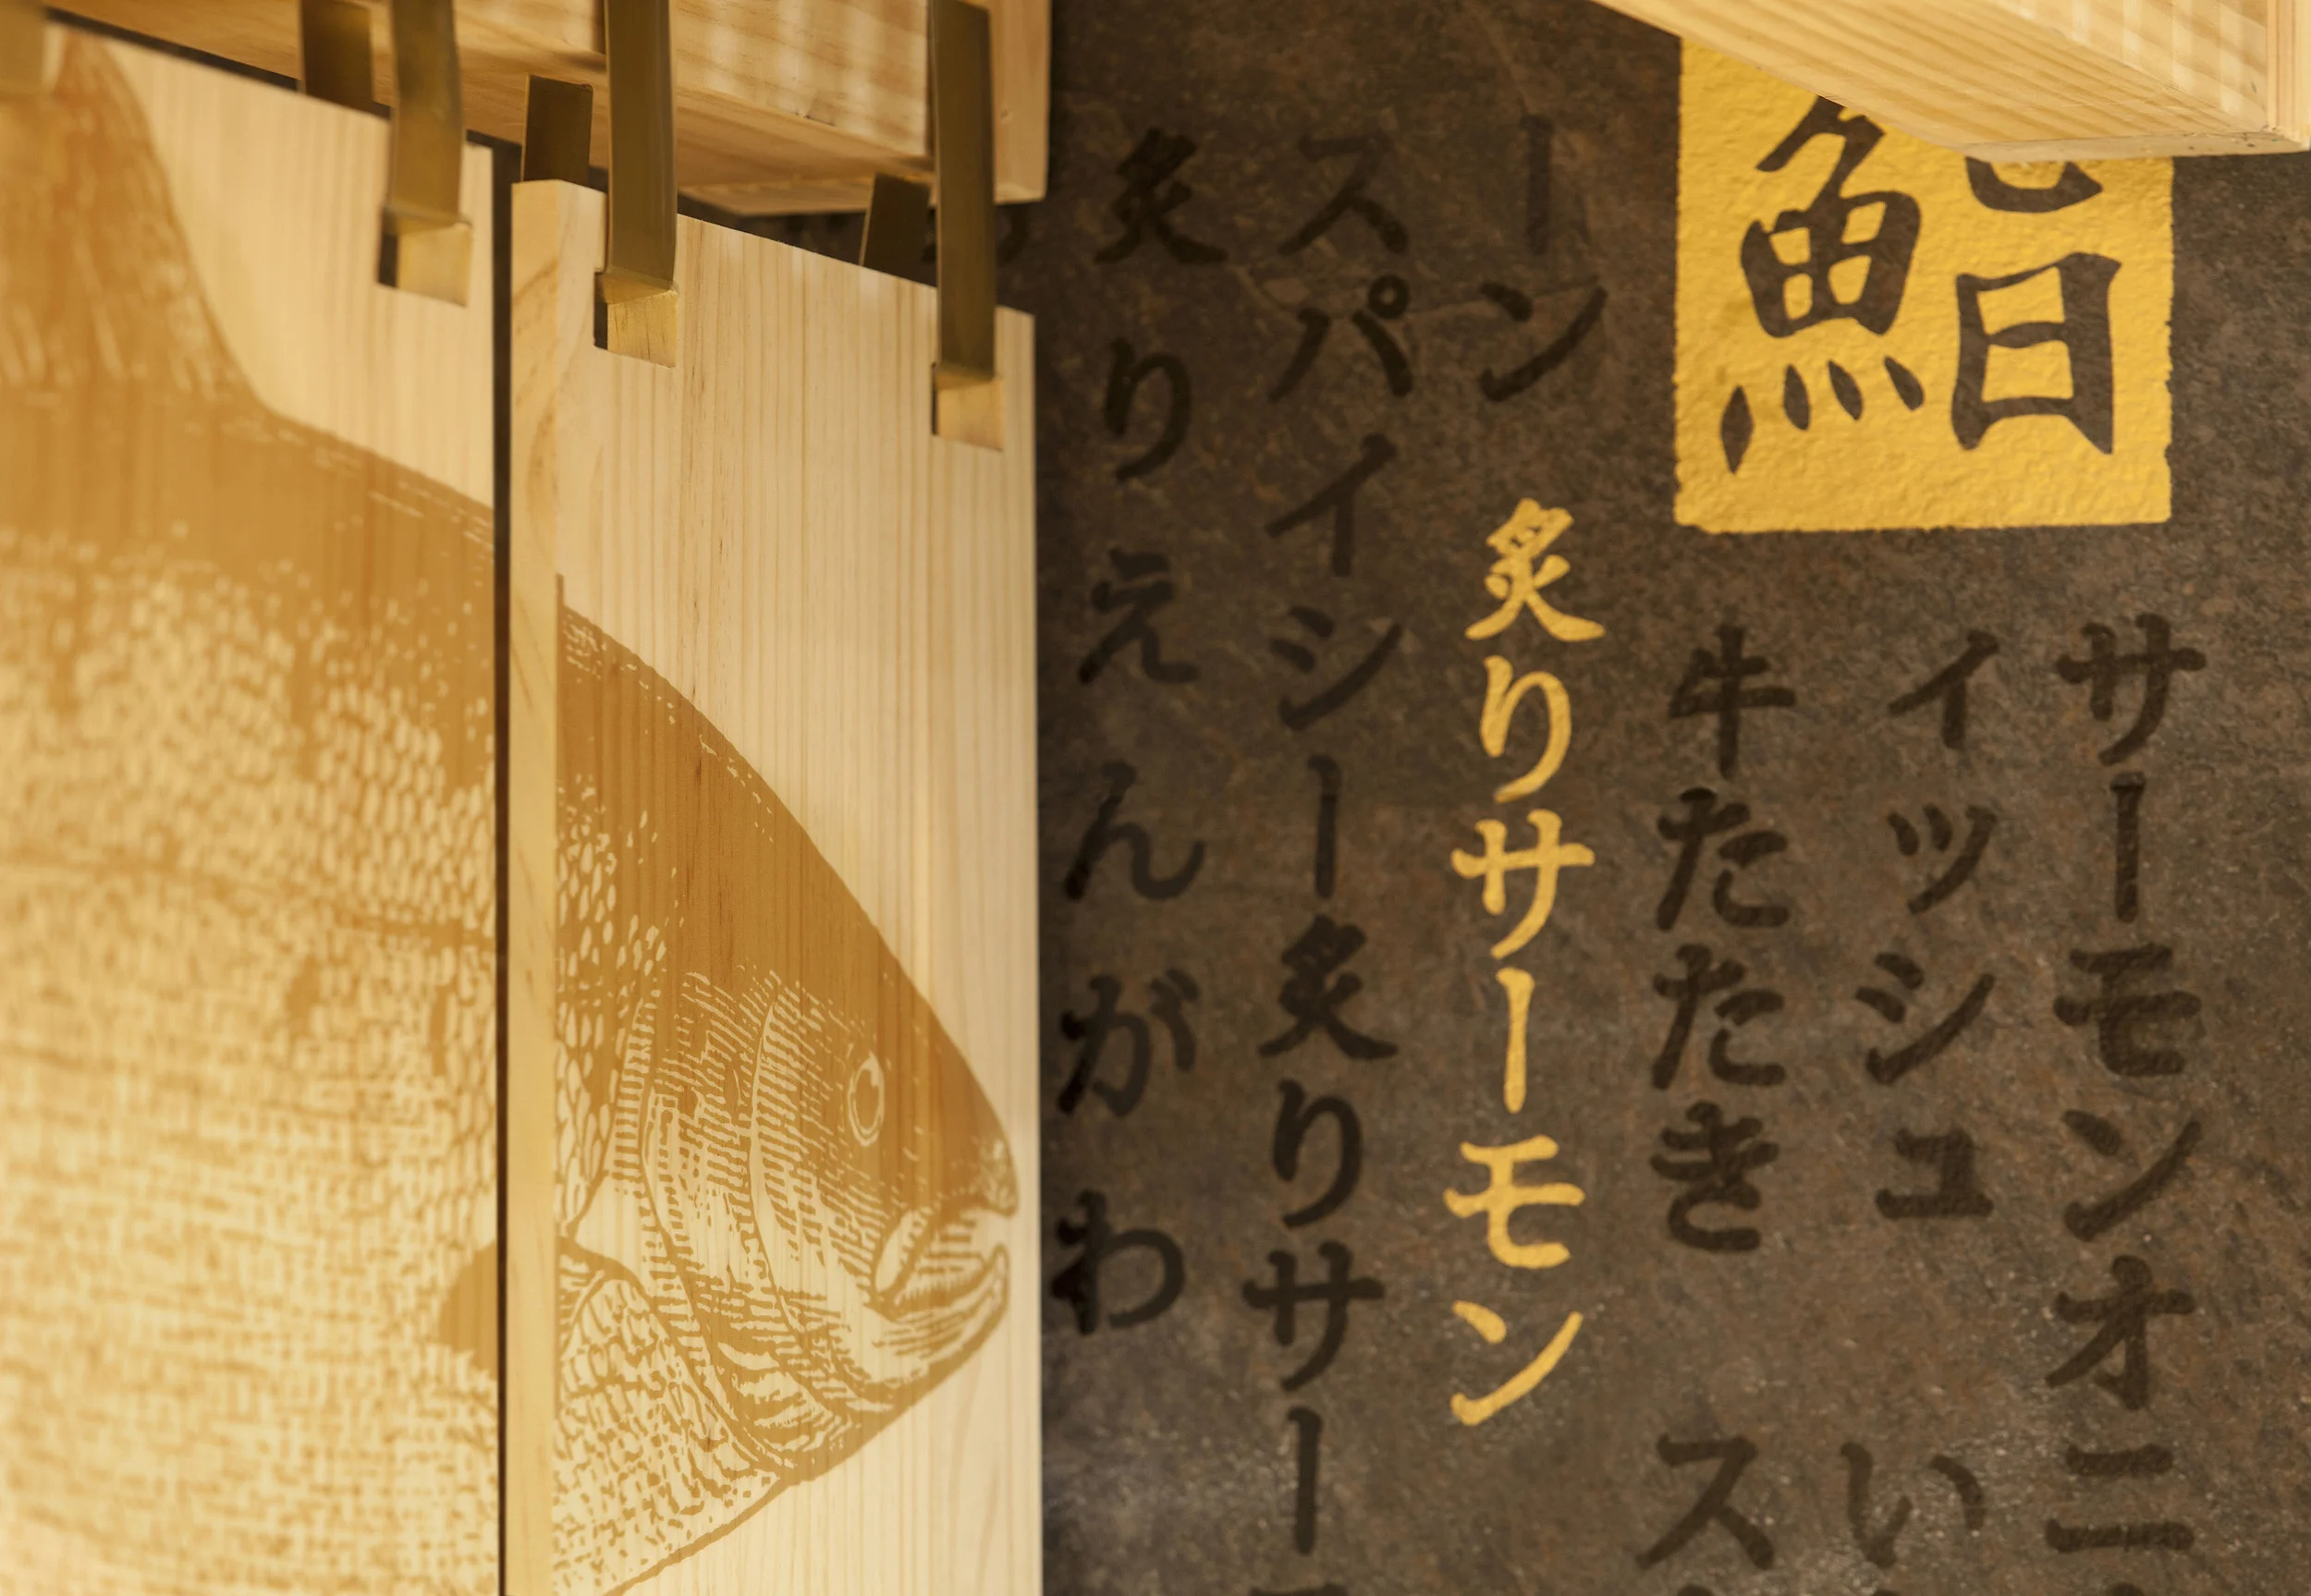 鮨
サーモンオニ
イッシュ　い
牛たたき　ス
ーン　炙りサーモン
スパイシー炙りサー
炙りえんがわ